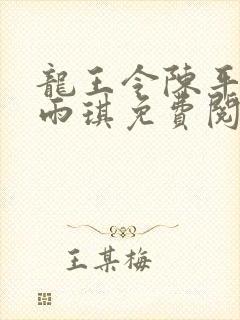 龍王令陳平
雨琪免費閱
王某梅